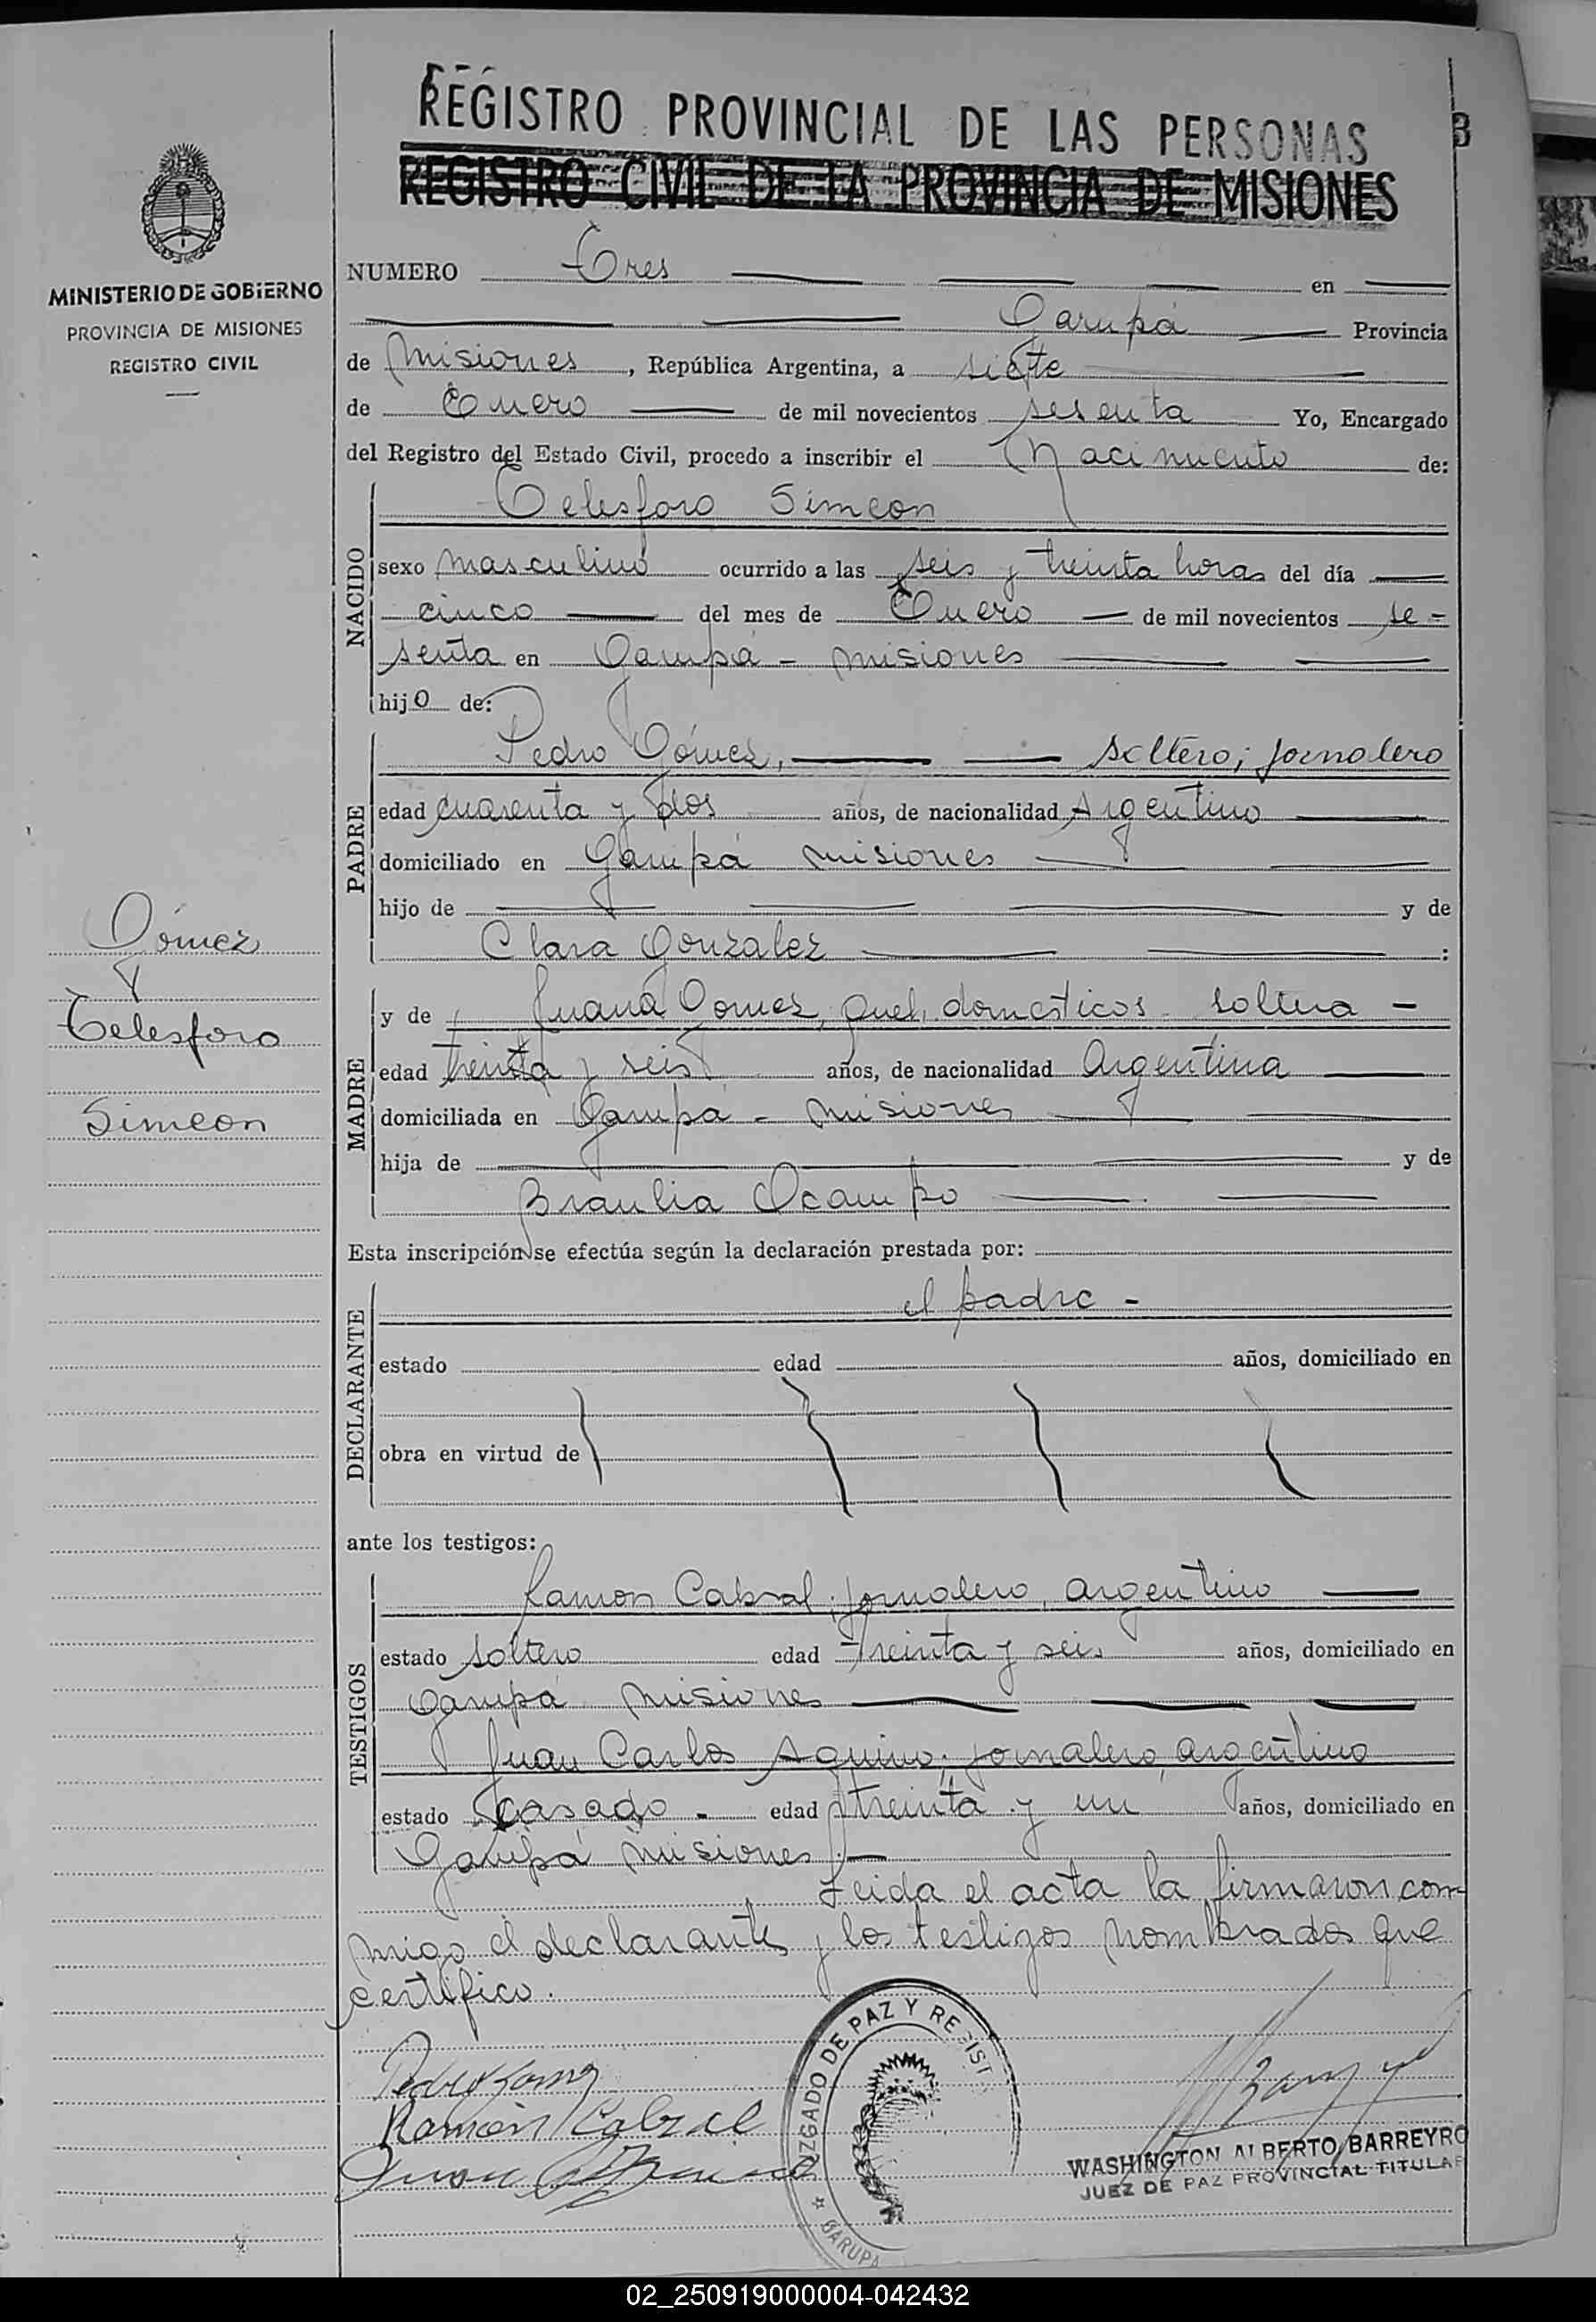 REGISTRO PROVINCIAL DE LAS PERSONAS
3
REGISTRO CIVIL DE LA PROVINCIA DE MISIONES
MINISTERIO DE GOBIERNO
PROVINCIA DE MISIONES
REGISTRO CIVIL
NUMERO Tres en
Garupá Provincia
de Misiones, República Argentina, a siete
de Enero de mil novecientos sesenta Yo, Encargado
del Registro del Estado Civil, procedo a inscribir el Nacimiento de:
NACIDO
Telesforo Simeon
sexo masculino ocurrido a las seis y treinta horas del día
cinco del mes de Enero de mil novecientos se-
senta en Garupá - Misiones
hijo de:
PADRE
Pedro Gómez, soltero; jornalero
edad cuarenta y dos años, de nacionalidad Argentino
domiciliado en Garupá Misiones
hijo de y de
Clara Gonzalez :
Gómez
Telesforo
Simeon
MADRE
y de Juana Gomez, queh, domesticos soltera -
edad treinta y seis años, de nacionalidad Argentina
domiciliada en Garupá - Misiones
hija de y de
Braulia Ocampo
Esta inscripción se efectúa según la declaración prestada por:
DECLARANTE
el padre -
estado edad años, domiciliado en
obra en virtud de
ante los testigos:
TESTIGOS
Ramon Cabral, jornalero, argentino
estado soltero edad treinta y seis años, domiciliado en
Garupá Misiones
Juan Carlos Aquino, jornalero, argentino
estado casado - edad treinta y un años, domiciliado en
Garupá Misiones.-
Leida el acta la firmaron con-
migo el declarante y los testigos nombrados que
certifico.
Pedro Gomez
Ramón Cabral
Juan
JUZGADO DE PAZ Y REGIST
GARUPA
WASHINGTON ALBERTO BARREYRO
JUEZ DE PAZ PROVINCIAL TITULAR
02_250919000004-042432